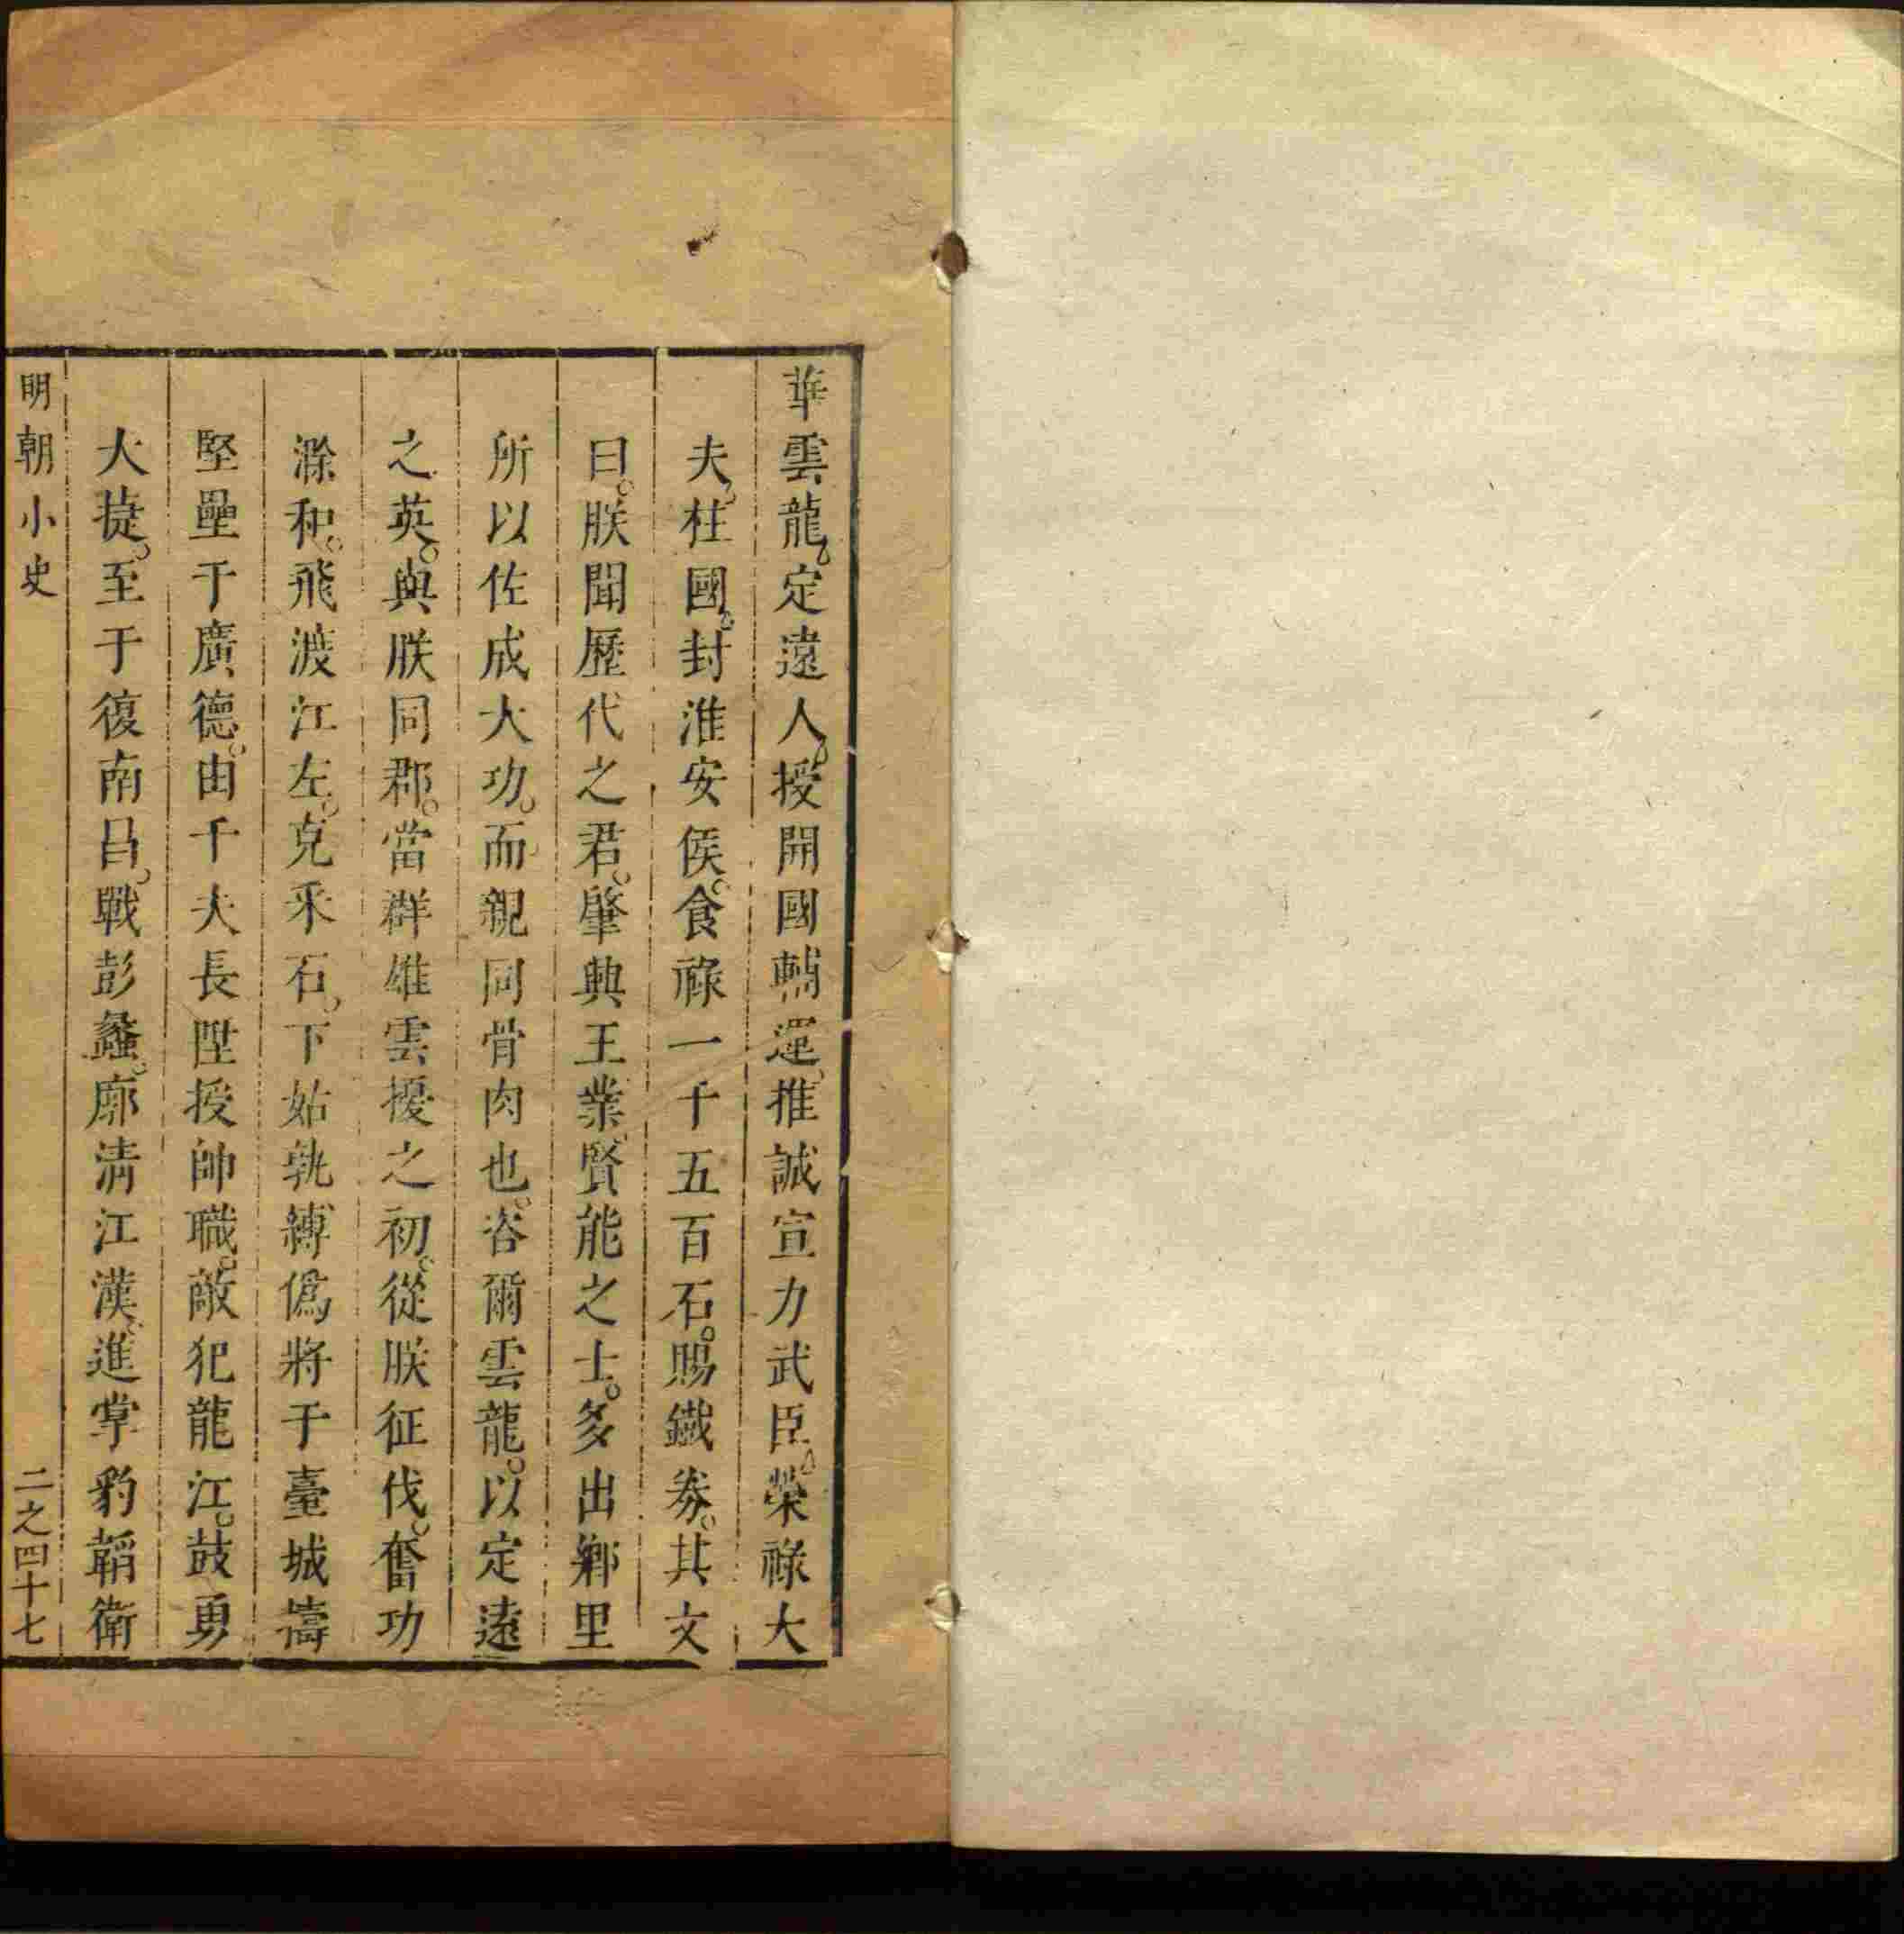 華雲龍。定遠人。授開國輔運。推誠宣力武臣。榮祿大
夫。柱國。封淮安侯。食祿一千五百石。賜鐵券。其文
曰。朕聞歷代之君。肇興王業。賢能之士。多出鄉里
所以佐成大功。而親同骨肉也。咨爾雲龍。以定遠
之英。與朕同郡。當群雄雲擾之初。從朕征伐。奮功
滁和。飛渡江左。克釆石。下姑孰。縛僞將于臺城。擣
堅壘于廣德。由千夫長陞授帥職。敵犯龍江。鼓勇
大捷。至于復南昌。戰彭蠡。廓清江漢。進掌豹韜衛
明朝小史 二之四十七